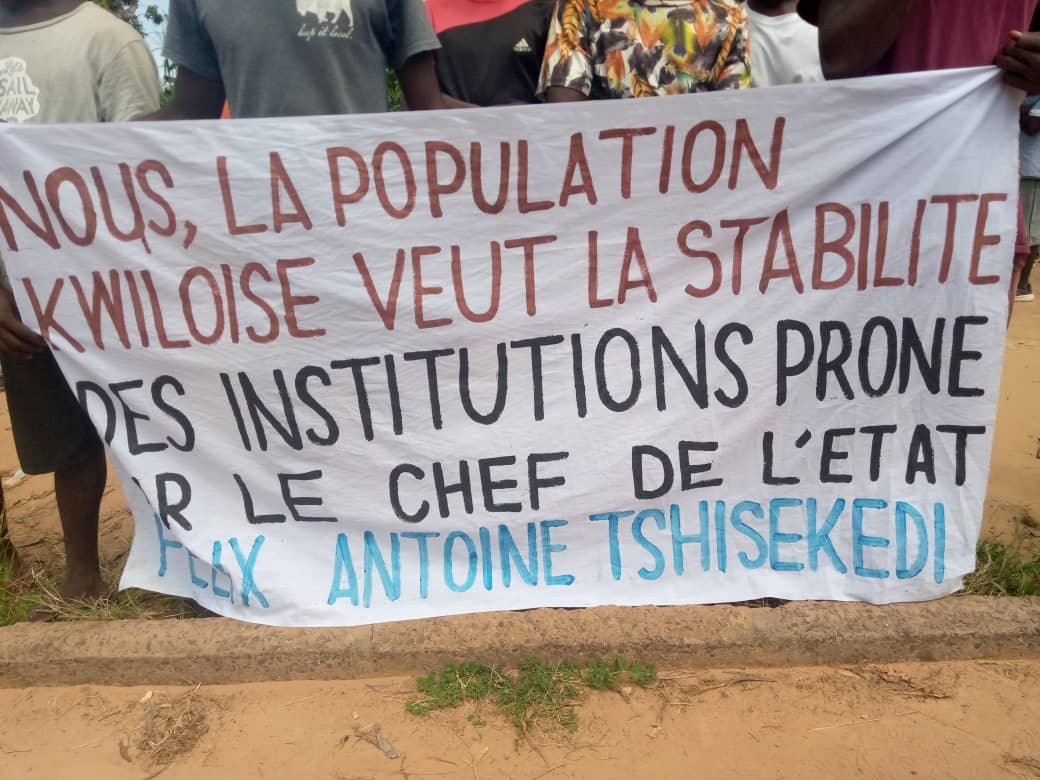 SAIL
AWAY
keep it local.
adidas
NOUS, LA POPULATION
KWILOISE VEUT LA STABILITE
DES INSTITUTIONS PRONE
AR LE CHEF DE L'ETAT
FELIX ANTOINE TSHISEKEDI